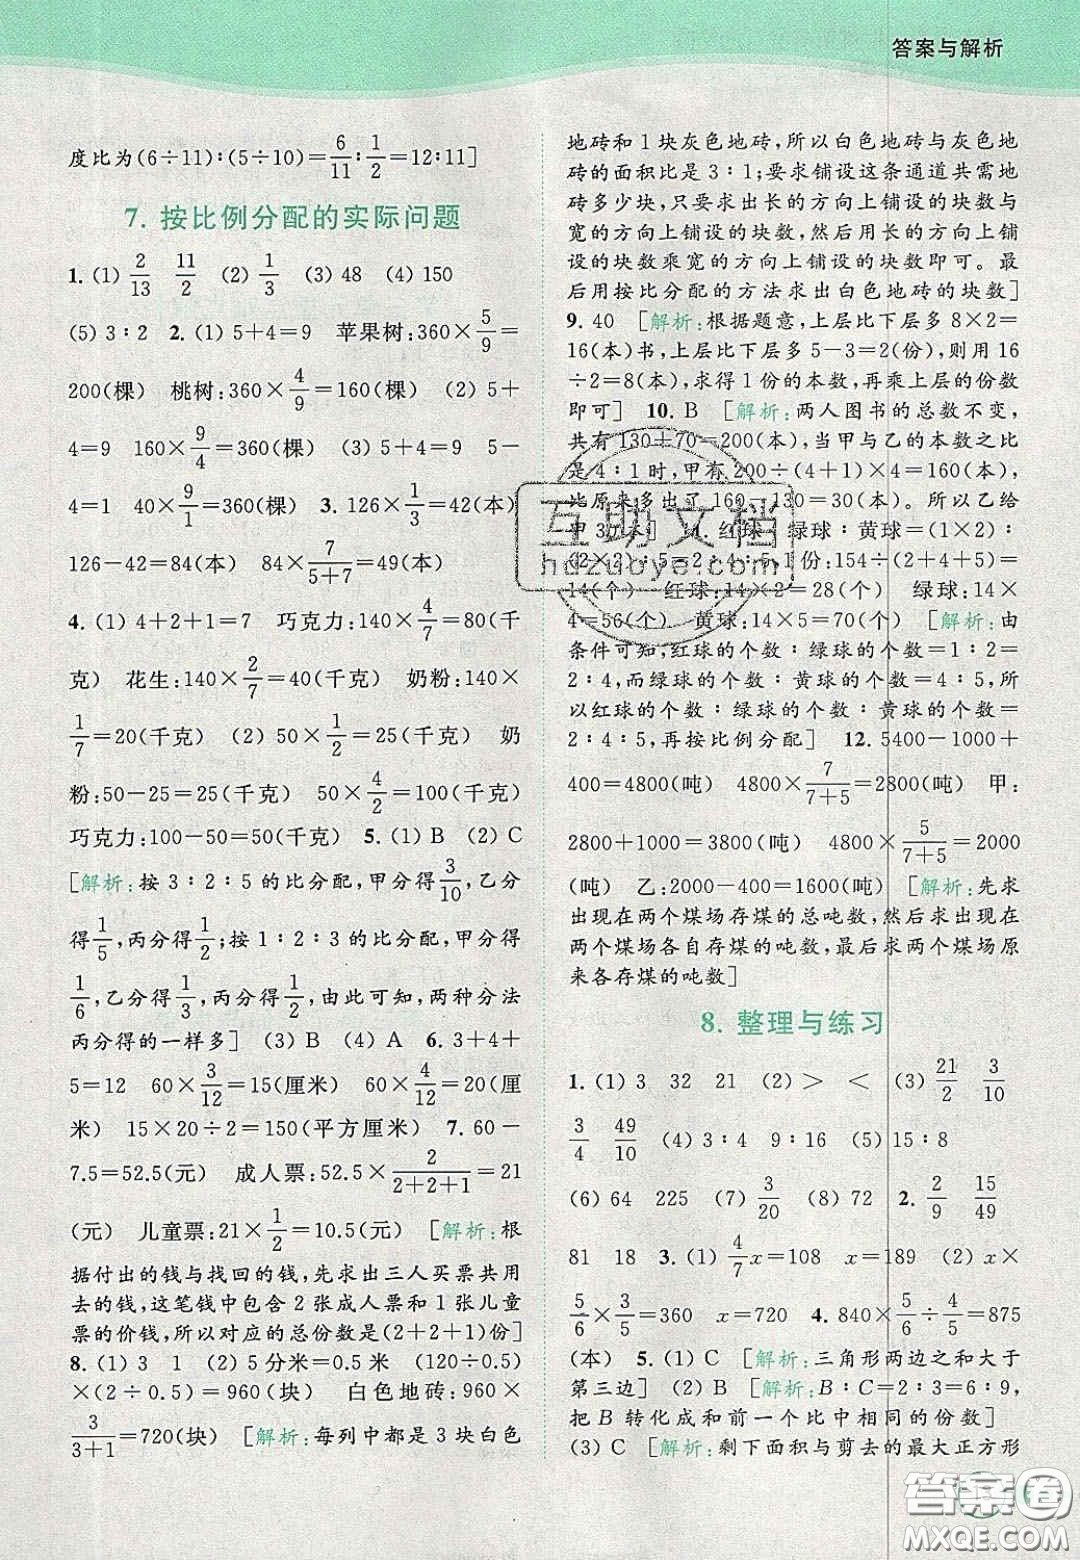 答案与解析
度比为(6÷11)∶(5÷10)=6/11∶1/2=12∶11]
7. 按比例分配的实际问题
1. (1) 2/13 11/2 (2) 1/3 (3) 48 (4) 150
(5) 3∶2 2. (1) 5+4=9 苹果树:360×5/9=
200(棵) 桃树:360×4/9=160(棵) (2) 5+
4=9 160×9/4=360(棵) (3) 5+4=9 5-
4=1 40×9/1=360(棵) 3. 126×1/3=42(本)
126-42=84(本) 84×7/(5+7)=49(本)
4. (1) 4+2+1=7 巧克力:140×4/7=80(千
克) 花生:140×2/7=40(千克) 奶粉:140×
1/7=20(千克) (2) 50×1/2=25(千克) 奶
粉:50-25=25(千克) 50×4/2=100(千克)
巧克力:100-50=50(千克) 5. (1) B (2) C
[解析:按3∶2∶5的比分配,甲分得3/10,乙分
得1/5,丙分得1/2;按1∶2∶3的比分配,甲分得
1/6,乙分得1/3,丙分得1/2,由此可知,两种分法
丙分得的一样多] (3) B (4) A 6. 3+4+
5=12 60×3/12=15(厘米) 60×4/12=20(厘
米) 15×20÷2=150(平方厘米) 7. 60-
7.5=52.5(元) 成人票:52.5×2/(2+2+1)=21
(元) 儿童票:21×1/2=10.5(元) [解析:根
据付出的钱与找回的钱,先求出三人买票共用
去的钱,这笔钱中包含2张成人票和1张儿童
票的价钱,所以对应的总份数是(2+2+1)份]
8. (1) 3 1 (2) 5分米=0.5米 (120÷0.5)
×(2÷0.5)=960(块) 白色地砖:960×
3/(3+1)=720(块) [解析:每列中都是3块白色
地砖和1块灰色地砖,所以白色地砖与灰色地
砖的面积比是3∶1;要求铺设这条通道共需地
砖多少块,只要求出长的方向上铺设的块数与
宽的方向上铺设的块数,然后用长的方向上铺
设的块数乘宽的方向上铺设的块数即可。最
后用按比分配的方法求出白色地砖的块数]
9. 40 [解析:根据题意,上层比下层多8×2=
16(本)书,上层比下层多5-3=2(份),则用16
÷2=8(本),求得1份的本数,再乘上层的份数
即可] 10. B [解析:两人图书的总数不变,
共有130+70=200(本),当甲与乙的本数之比
是4∶1时,甲有200÷(4+1)×4=160(本),
比原来多出了160-130=30(本)。所以乙给
甲30本] 11. 红球∶绿球∶黄球=(1×2)∶
(2×2)∶5=2∶4∶5 1份:154÷(2+4+5)=
14(个) 红球:14×2=28(个) 绿球:14×
4=56(个) 黄球:14×5=70(个) [解析:由
条件可知,红球的个数∶绿球的个数=1∶2=
2∶4,而绿球的个数∶黄球的个数=4∶5,所
以红球的个数∶绿球的个数∶黄球的个数=
2∶4∶5,再按比例分配] 12. 5400-1000+
400=4800(吨) 4800×7/(7+5)=2800(吨) 甲:
2800+1000=3800(吨) 4800×5/(7+5)=2000
(吨) 乙:2000-400=1600(吨) [解析:先求
出现在两个煤场存煤的总吨数,然后求出现在
两个煤场各自存煤的吨数,最后求两个煤场原
来各存煤的吨数]
8. 整理与练习
1. (1) 3 32 21 (2) > < (3) 21/2 3/10
3/4 49/10 (4) 3∶4 9∶16 (5) 15∶8
(6) 64 225 (7) 3/20 (8) 72 2. 2/9 15/49
81 18 3. (1) 4/7x=108 x=189 (2) x×
5/6×3/5=360 x=720 4. 840×5/6÷4/5=875
(本) 5. (1) C [解析:三角形两边之和大于
第三边] (2) B [解析:B∶C=2∶3=6∶9,
把B转化成和前一个比中相同的份数]
(3) C [解析:剩下面积与剪去的最大正方形
互助文档
hdzuoye.com
答案卷
MXQE.COM